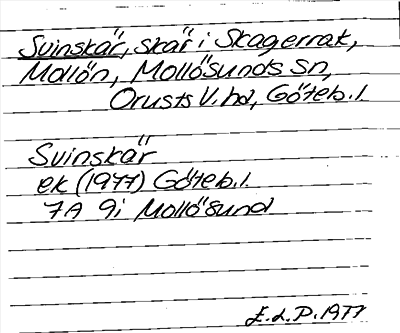 Svinskär, skär i Skagerrak,
Mollön, Mollösunds sn,
Orusts V. hd, Göteb. l.
Svinskär
ek (1977) Göteb. l.
7A 9i Mollösund
E.L.P. 1977